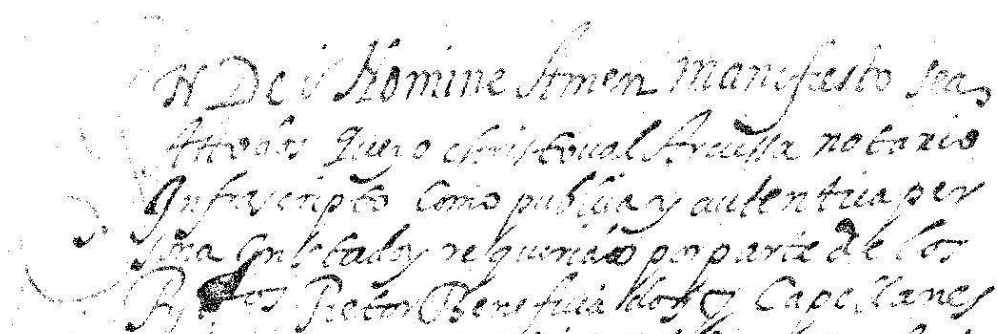 N Dei Nomine Amen Manifiesto sea
Attodos Que yo christoual Aruissa notario
Infrascripto Como publica y autentica per
sona Instado y requerido por parte de los
Rdos Retor Beneficiados y Capellanes